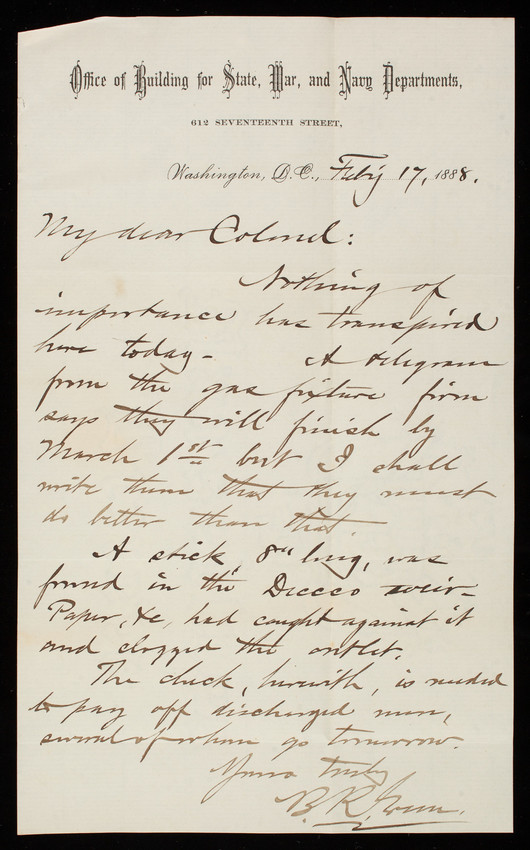 Office of Building for State, War, and Navy Departments,
612 SEVENTEENTH STREET,
Washington, D.C., Feb'y 17, 1888.
My dear Colonel:
Nothing of
importance has transpired
here today - A telegram
from the gas fixture firm
says they will finish by
March 1st but I shall
write them that they must
do better than that.
A stick, 8" long, was
found in the weir -
Paper, &c, had caught against it
and clogged the outlet.
The check, herewith, is needed
to pay off discharged men,
several of whom go tomorrow.
Yours truly
B. R. Green.